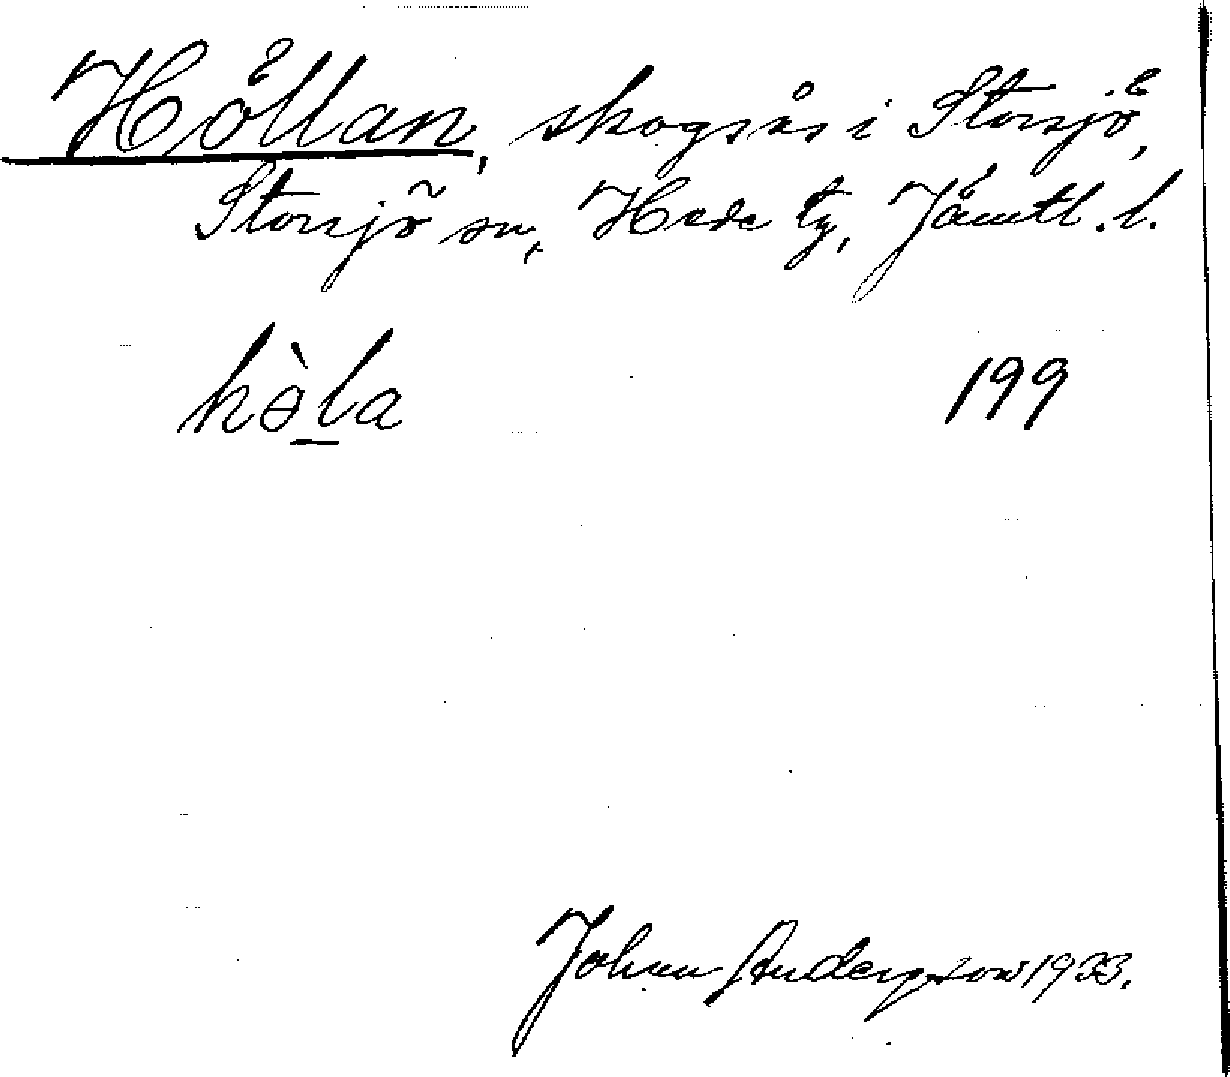 Höllan, skogsås i Storsjö,
Storsjö sn, Hede tg, Jämtl. l.
hə̀la 199
Johan Andersson 1933.